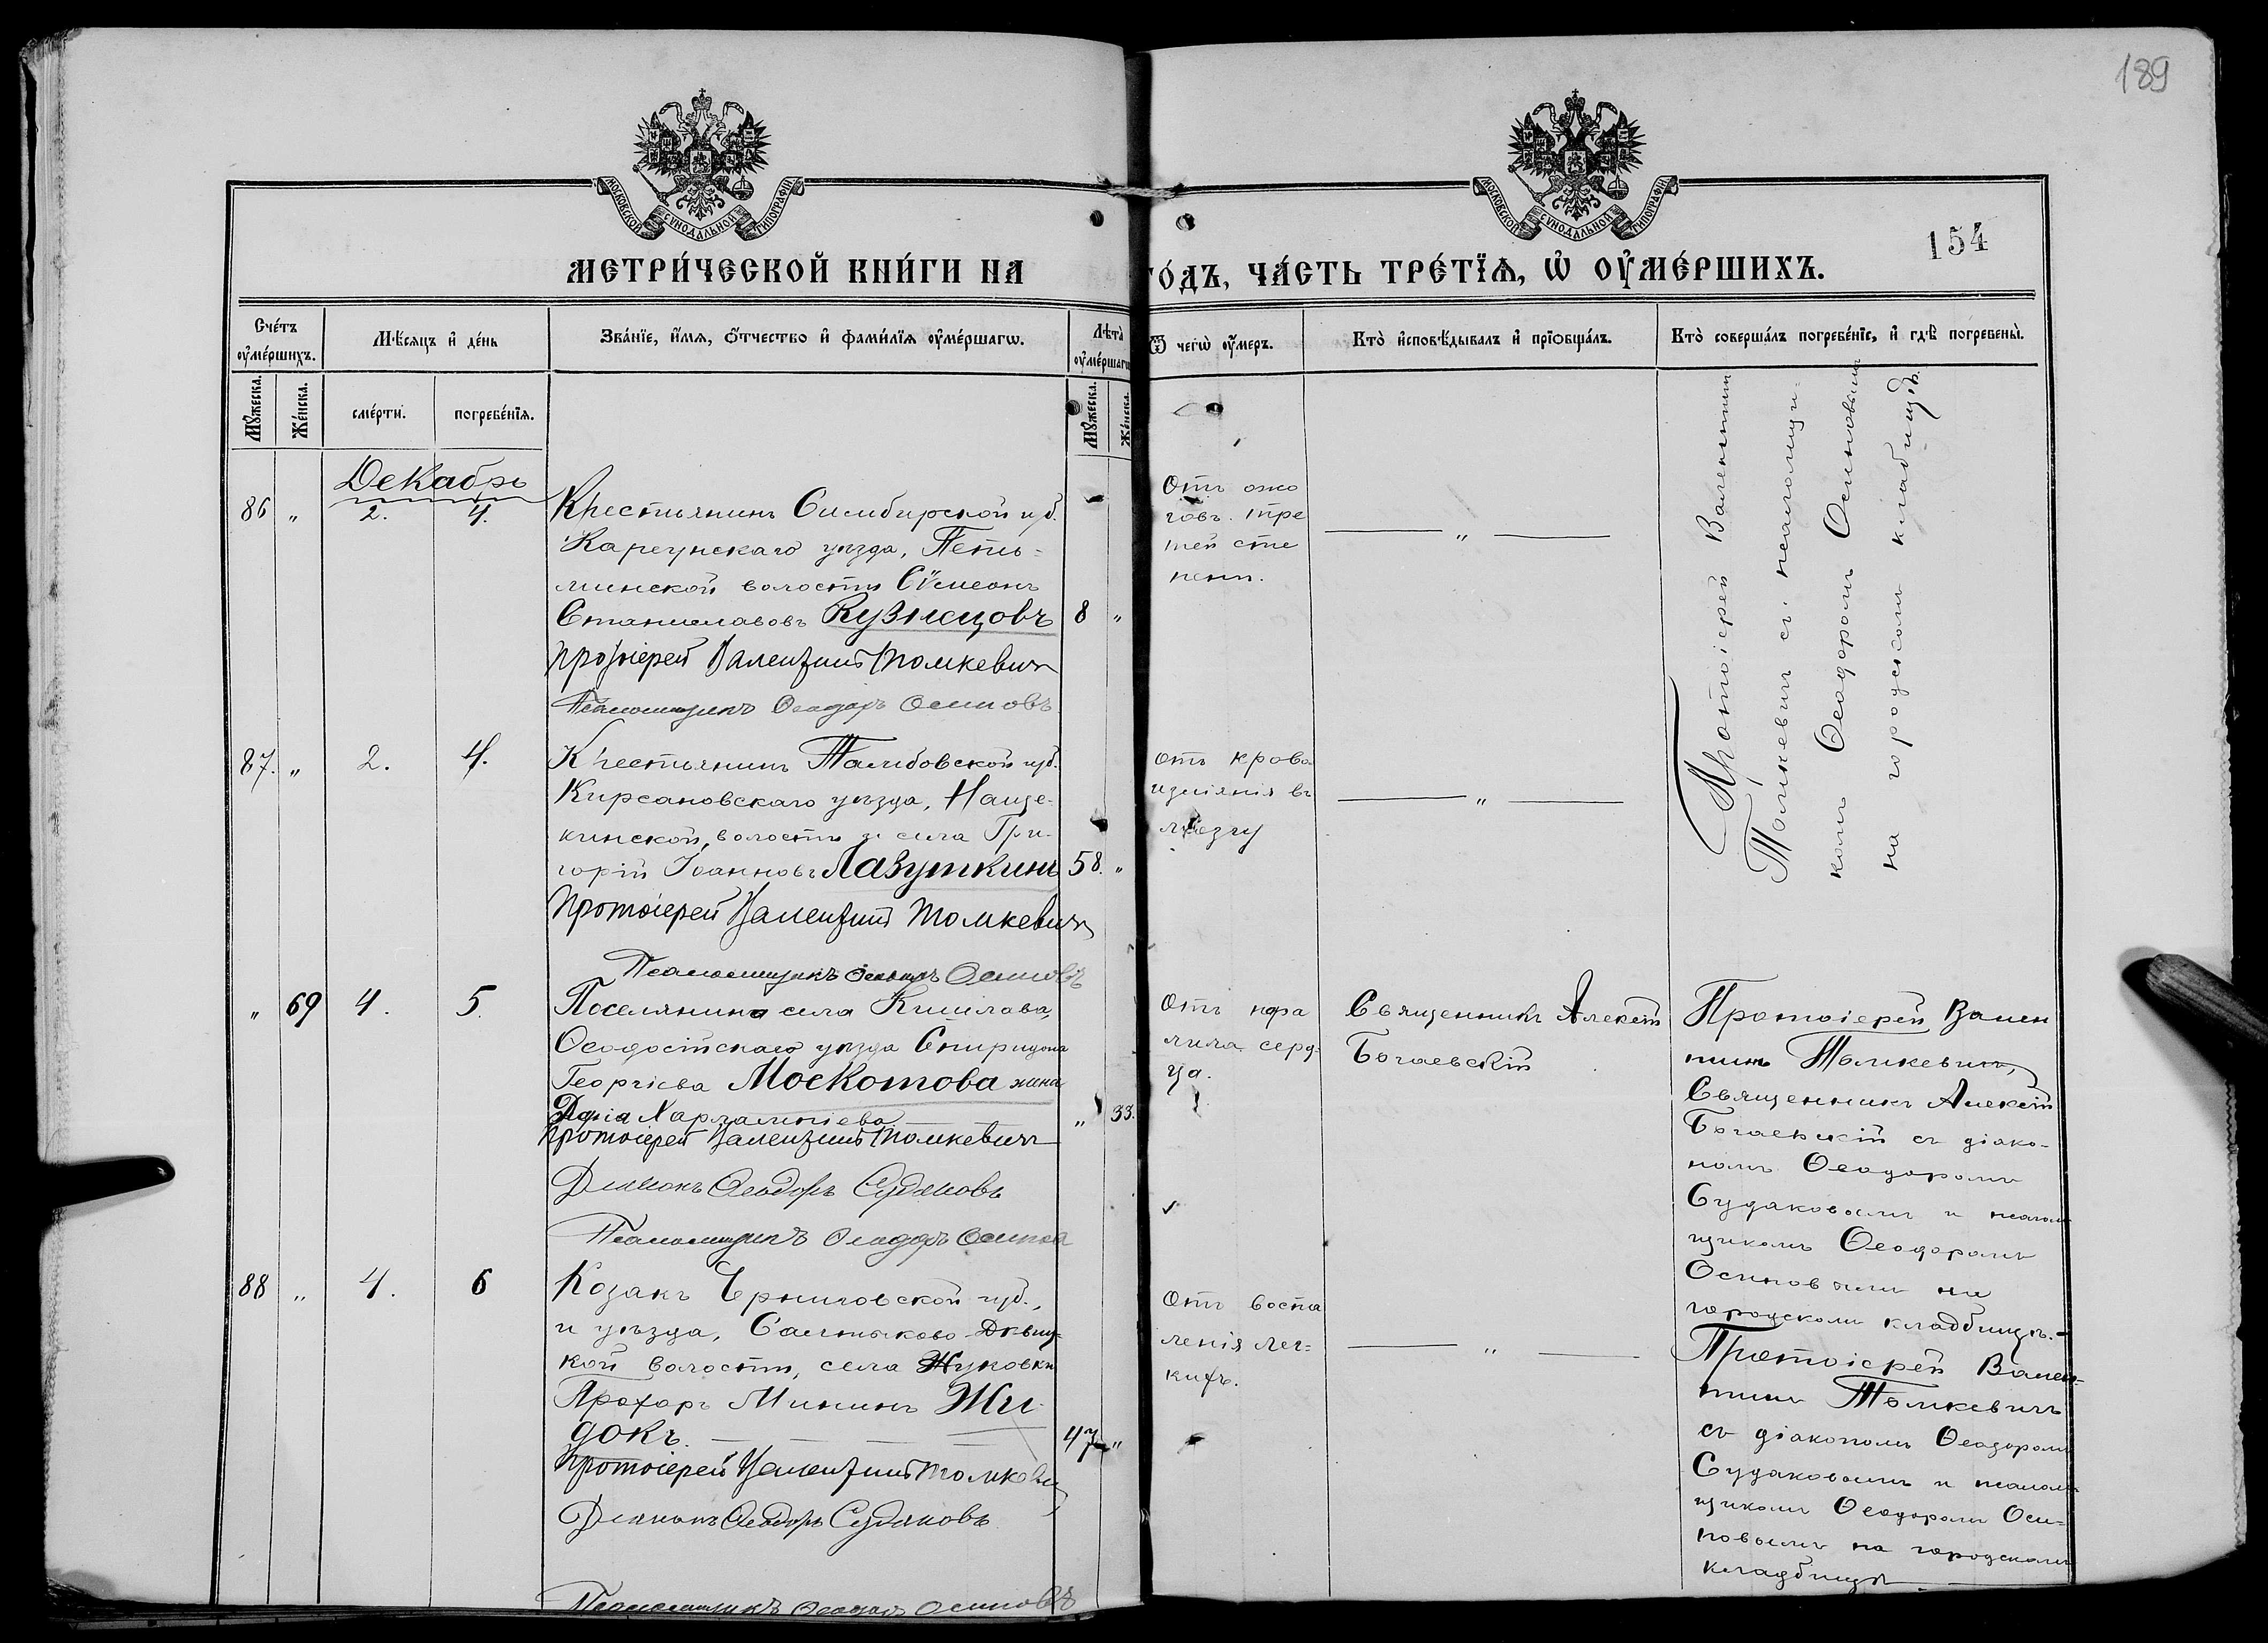 189
МОСКОВСКОЙ СѴНОДАЛЬНОЙ ТИПОГРАФІИ
МОСКОВСКОЙ СѴНОДАЛЬНОЙ ТИПОГРАФІИ
154
МЕТРИ́ЧЕСКОЙ КНИ́ГИ НА
ГО́ДЪ, ЧА́СТЬ ТРЕ́ТЇѦ, Ѡ҆ ОУ҆МЕ́РШИХЪ.
Сче́тъ оу҆ме́ршихъ.
Мѣ́сяцъ и҆ де́нь
Зва́нїе, и҆́мя, ѻ҆́тчество и҆ фами́лїя оу҆ме́ршагѡ.
Лѣта̀ оу҆ме́ршагѡ
Ѿ чегѡ̀ оу҆́меръ.
Кто̀ и҆сповѣ́дывалъ и҆ прїѻбща́лъ.
Кто̀ соверша́лъ погребе́нїе, и҆ гдѣ̀ погребены̀.
Мꙋ́жеска.
Же́нска.
сме́рти.
погребе́нїя.
Мꙋ́жеска.
Же́нска.
Декабрь
86 " 2. 4.
Крестьянинъ Симбирской губ.
Карсунскаго уѣзда,
минской волости Сѵмеонъ
Станиславовъ Кузнецовъ 8 "
Протоіерей Валентинъ Томкевичъ
Псаломщикъ Ѳеодоръ Осиповъ
Отъ ожо
говъ. тре
тей сте
пени.
"
Протоіерей Валентинъ
Томкевичъ съ псаломщи-
комъ Ѳеодоромъ Осиповымъ
на городскомъ кладбищѣ.
87. " 2. 4.
Крестьянинъ Тамбовской губ.
Кирсановскаго уѣзда, Наще-
кинской, волости и села Гри-
горій Іоанновъ Лазуткинъ 58. "
Протоіерей Валентинъ Томкевичъ
Псаломщикъ Ѳеодоръ Осиповъ
Отъ крово
изліянія въ
мозгу
"
" 69 4. 5.
Поселянина села Кишлава,
Ѳеодосійскаго уѣзда Спиридона
Георгіева Москотова жена
Дарія Харлампіева " 33.
Протоіерей Валентинъ Томкевичъ
Діаконъ Ѳеодоръ Судаковъ
Псаломщикъ Ѳеодоръ Осиповъ
Отъ пара
лича серд-
ца.
Священникъ Алексій
Богаевскій
Протоіерей Вален
тинъ Томкевичъ,
Священникъ Алексій
Богаевскій съ діако-
номъ Ѳеодоромъ
Судаковымъ и псалом
щикомъ Ѳеодоромъ
Осиповымъ на
городскомъ кладбищѣ.
88 " 4. 6
Козакъ Черниговской губ.,
и уѣзда, Салтыково-Дѣвиц-
кой волости, села Жуковки
Прохоръ Мининъ Жи
докъ. 47 "
Протоіерей Валентинъ Томкевичъ
Діаконъ Ѳеодоръ Судаковъ
Псаломщикъ Ѳеодоръ Осиповъ
Отъ воспа
ленія лег-
кихъ.
"
Протоіерей Вален-
тинъ Томкевичъ
съ діакономъ Ѳеодоромъ
Судаковымъ и псалом-
щикомъ Ѳеодоромъ Оси-
повымъ на городскомъ
кладбищѣ.